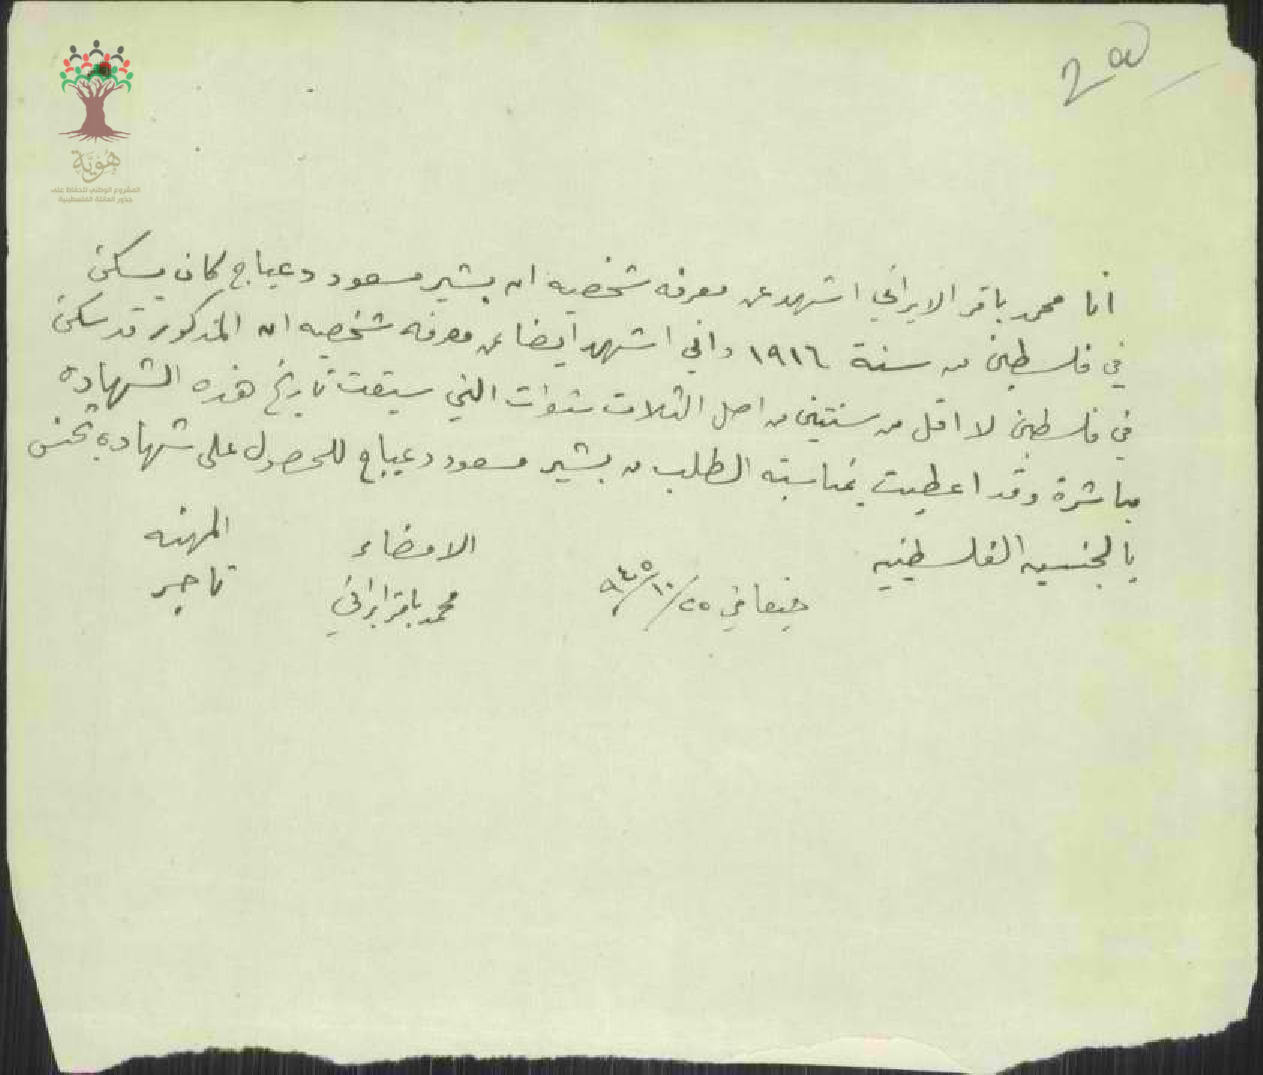 هُوِيَّة
المشروع الوطني للحفاظ على
جذور العائلة الفلسطينية
انا محمد باقر الايراني اشهد عن معرفه شخصيه ان بشير مسعود دعباج كان يسكن
في فلسطين من سنة ١٩١٦ واني اشهد ايضا عن معرفه شخصيه ان المذكور قد سكن
في فلسطين لا اقل من سنتين من اصل الثلاث سنوات التي سبقت تاريخ هذه الشهاده
مباشرة وقد اعطيت بمناسبة الطلب من بشير مسعود دعباج للحصول على شهادة تجنس
بالجنسيه الفلسطينيه
حيفا في ٢٥/١٠/٩٤٥
الامضاء
المهنه
محمد باقر ايراني
تاجر